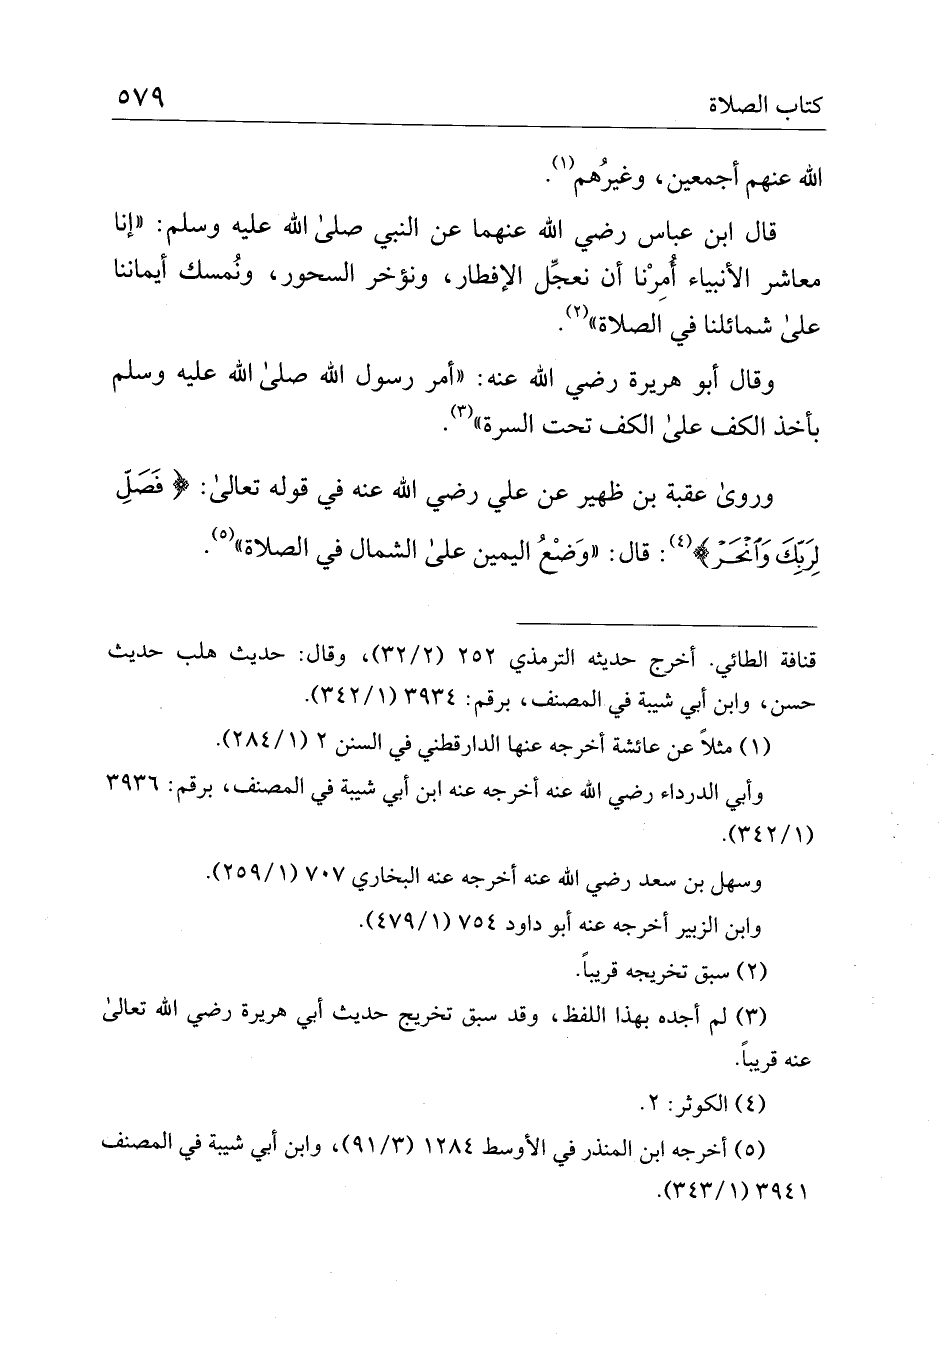 كتاب الصلاة ٥٧٩
الله عنهم أجمعين، وغيرُهم(١).
قال ابن عباس رضي الله عنهما عن النبي صلىٰ الله عليه وسلم: «إنا
معاشر الأنبياء أُمِرْنا أن نعجِّل الإفطار، ونؤخر السحور، ونُمسك أيماننا
علىٰ شمائلنا في الصلاة»(٢).
وقال أبو هريرة رضي الله عنه: «أمر رسول الله صلىٰ الله عليه وسلم
بأخذ الكف علىٰ الكف تحت السرة»(٣).
وروىٰ عقبة بن ظهير عن علي رضي الله عنه في قوله تعالىٰ: ﴿ فَصَلِّ
لِرَبِّكَ وَٱنْحَرْ ﴾(٤): قال: «وَضْعُ اليمين علىٰ الشمال في الصلاة»(٥).
قنافة الطائي. أخرج حديثه الترمذي ٢٥٢ (٣٢/٢)، وقال: حديث هلب حديث
حسن، وابن أبي شيبة في المصنف، برقم: ٣٩٣٤ (٣٤٢/١).
(١) مثلاً عن عائشة أخرجه عنها الدارقطني في السنن ٢ (٢٨٤/١).
وأبي الدرداء رضي الله عنه أخرجه عنه ابن أبي شيبة في المصنف، برقم: ٣٩٣٦
(٣٤٢/١).
وسهل بن سعد رضي الله عنه أخرجه عنه البخاري ٧٠٧ (٢٥٩/١).
وابن الزبير أخرجه عنه أبو داود ٧٥٤ (٤٧٩/١).
(٢) سبق تخريجه قريباً.
(٣) لم أجده بهذا اللفظ، وقد سبق تخريج حديث أبي هريرة رضي الله تعالىٰ
عنه قريباً.
(٤) الكوثر: ٢.
(٥) أخرجه ابن المنذر في الأوسط ١٢٨٤ (٩١/٣)، وابن أبي شيبة في المصنف
٣٩٤١ (٣٤٣/١).